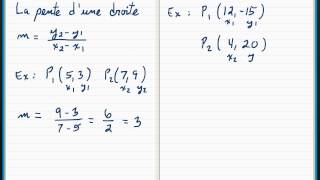 La pente d'une droite
m = y₂-y₁ / x₂-x₁
Ex: P₁(5,3) P₂(7,9)
x₁ y₁ x₂ y₂
m = 9-3 / 7-5 = 6 / 2 = 3
Ex: P₁(12,-15)
x₁ y₁
P₂(4,20)
x₂ y